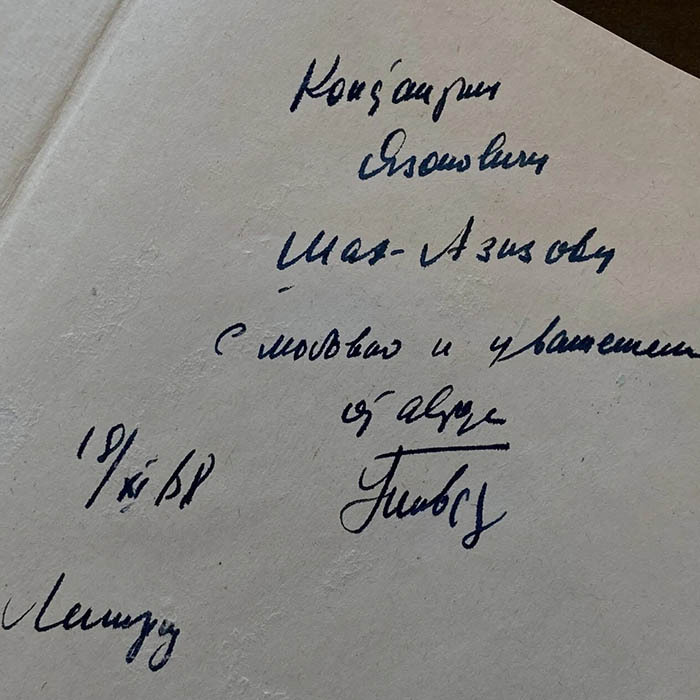 Константину
Язоновичу
Шах-Азизову
С любовью и уважением
от автора
18/XI 68
Ленинград